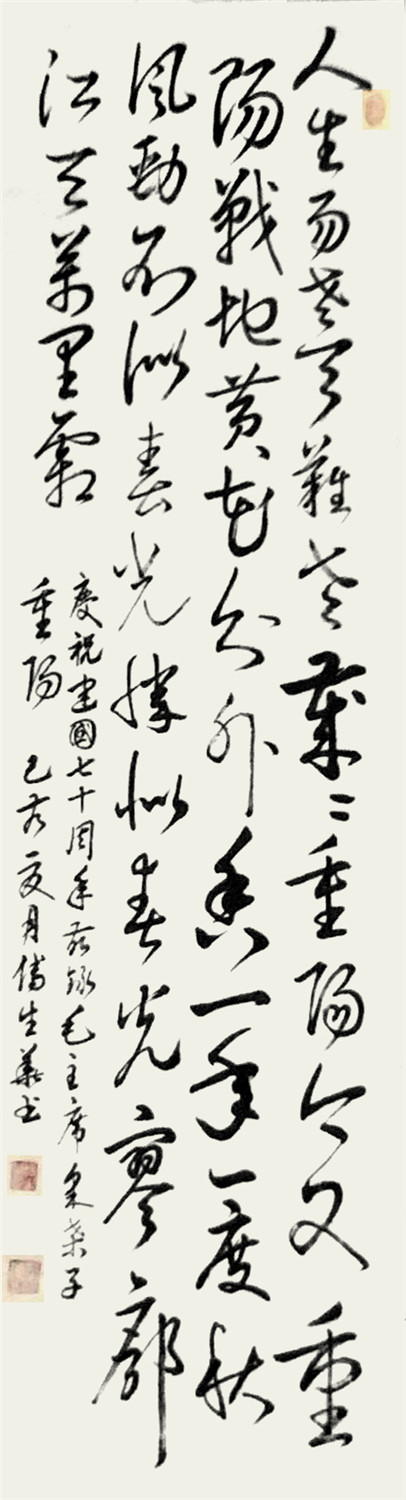 人生易老天難老歲〻重陽今又重
陽戰地黃花分外香一年一度秋
風勁不似春光勝似春光寥廓
江天萬里霜
慶祝建國七十周年錄毛主席采桑子
重陽 己亥夏月傅生華书